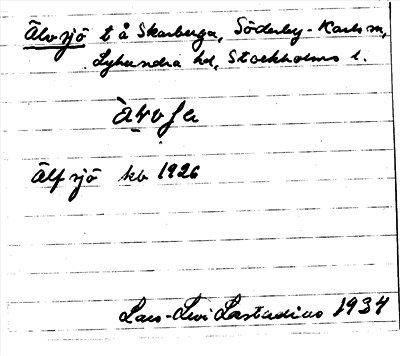 Älvsjö t å Skarberga, Söderby-Karls sn,
Lyhundra hd, Stockholms l.
Älfsjö kb 1926
Lars-Levi Læstadius 1934